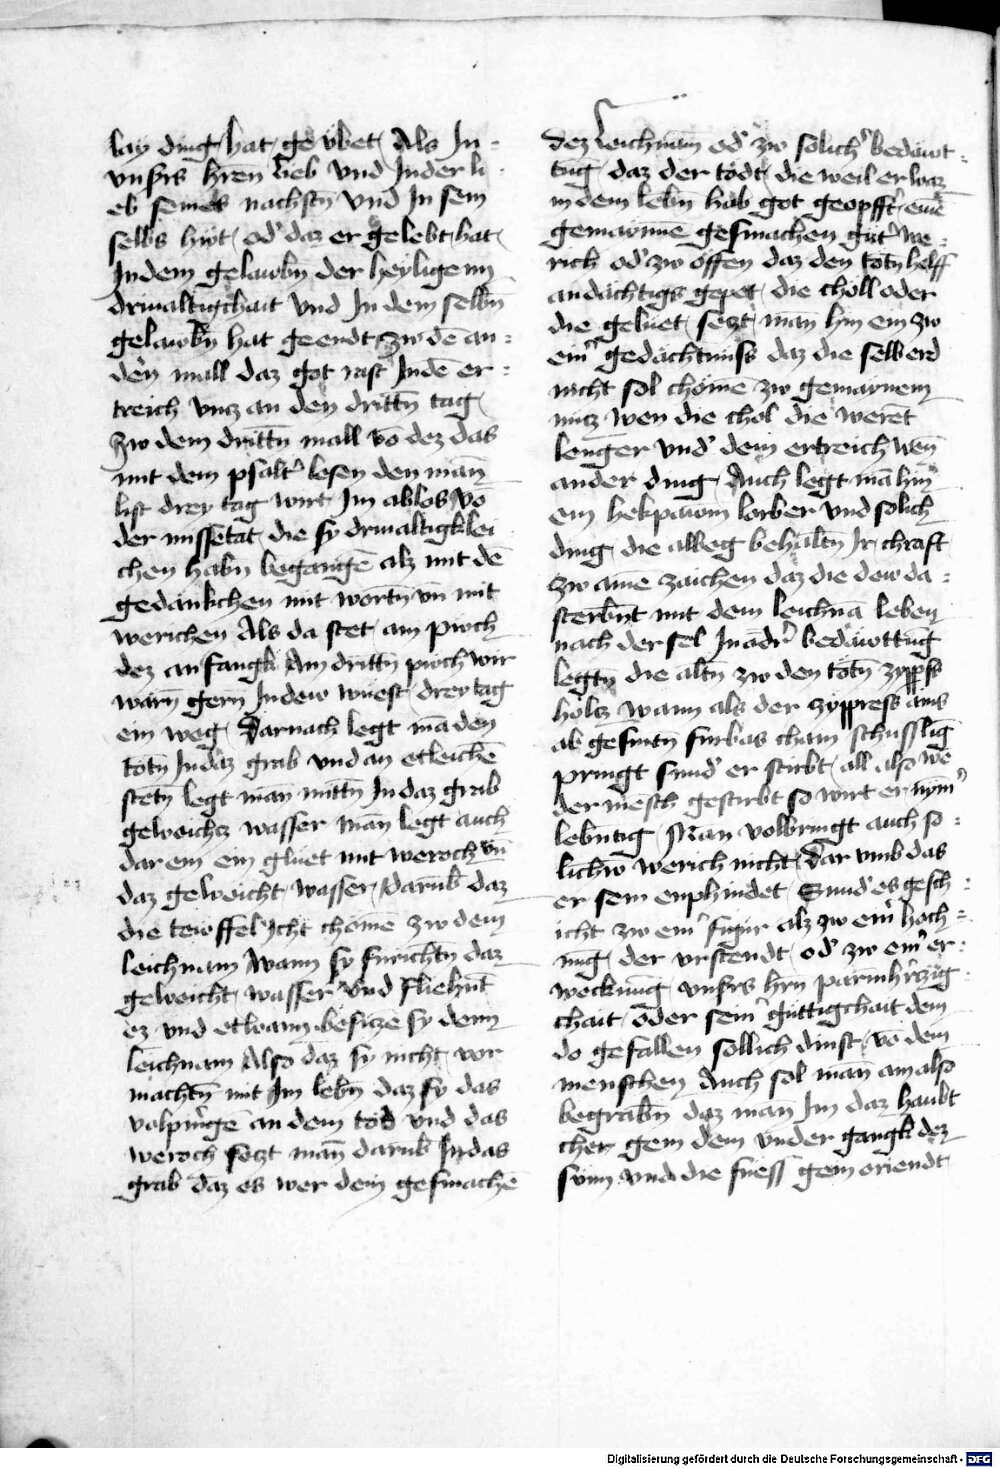 lay ding hat ge vbet Als In =
vnsrs hren lieb vnd Inder li =
eb seines nachstn̄ vnd In sein
selbs hu̇t od' daz er gelebt hat
Indem gelawbn̄ der heyligenn
driualtigchait vnd In dem selbn̄
gelawbn̄ hat geendt zw dē an =
dern mall daz got rast Indē er =
treich vncz an den drittn̄ tag
zw dem drittn̄ mall vō dez das
mit dem psalt' lesen den man̄
list drey tag wirt Im ablos vō
der missetat die sy driualtigklei
chen habn̄ begangē alz mit dē
gedankchen mit wortn̄ vn̄ mit
werichen Als da stet am puch
dez anfangk Am drittn̄ puch wir
warn̄ gern Indew wuest drey tag
ein weg Darnach legt mā den
totn̄ In daz grab vnd an etleichē
stetn̄ legt man̄ mittn̄ In daz grab
geweichcz wasser man̄ legt auch
dar ein ein gluet mit weroch vn̄
daz geweicht wasser darūb daz
die tewffel icht chömē zw dem
leichnam Wann sy furichtn̄ daz
geweicht wasser vnd fliehn̄t
ez vnd etwann besiczē sy denn
leichnam Also daz sy nicht vor
machtn̄ mit Im lebn̄ daz sy das
volpringē an dem tod vnd das
weroch seczt man̄ darūb In das
grab daz es wer dem gesmachē
dez leichnam od' zw solich' bedawt =
tūg daz der todt die weil er waz
in dem lebn̄ hab got geopfft' einē
gemaynnē gesmachen gut' we =
rich od' zw offen daz den totn̄ helff
andachtigs gepet die choll oder
die geluet seczt man̄ hin ein zw
ein' gedachtnuss daz die selb erd
nicht sol chömē zw gemaynem
nucz wen die chol die werēt
lenger vnd' dem ertreich wen̄
ander ding Auch legt mā hin
ein hekpawm lorber vnd solich
ding die albeg behaltn̄ Ir chraft
zw ainē zaichen daz die dew da =
sterbn̄t mit dem leichnā leben
nach der sel In ādr' bedawttūg
legtn̄ die altn̄ zw den totn̄ zyppss
holcz wann als der zyppress ains
ab gesnitn̄ furbas chain schusslīg
pringt sund' er stirbt all also wē
der mēsch gestirbt so wirt er nym'
lebntig Man volbringt auch so =
lichw werich nicht Dar vmb das
er sein enphindet Sund' es gesch =
icht zw ein' figur alz zw ein' hoch =
nūg der vrstendt od' zw ein' er =
weckūng vnsrs hrn parmh'czig =
chait oder sein' guttigchait dem
do gefallen sollich dinst vō dem
menschen Auch sol man̄ ain also
begrabn̄ daz man̄ Im daz haubt
cher gein dem vnder gangk dez
sūnn vnd die fuess gein oriendt
Digitalisierung gefördert durch die Deutsche Forschungsgemeinschaft - DFG